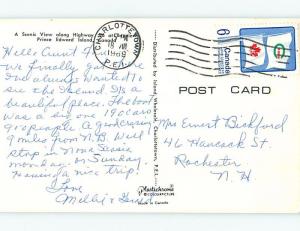 A Scenic View along Highway
Prince Edward Island, Canada
Hello Aunt
we finally got here
I'd always wanted to
see the Island. It's a
beautiful place. The boat
was a big one 190 cars
900 people. A good crossing
9 miles from N.B. Will
stop in Nova Scotia
monday or Sunday.
Having a nice trip!
Love
Millie &
CHARLOTTETOWN
18
VIII
1969
P.E.I.
6
Canada
POST CARD
Mrs Ernest Bickford
46 Hancock St.
Rochester
N. H
Distributed by Island Wholesale, Charlottetown, P.E.I.
Plastichrome
Made in Canada